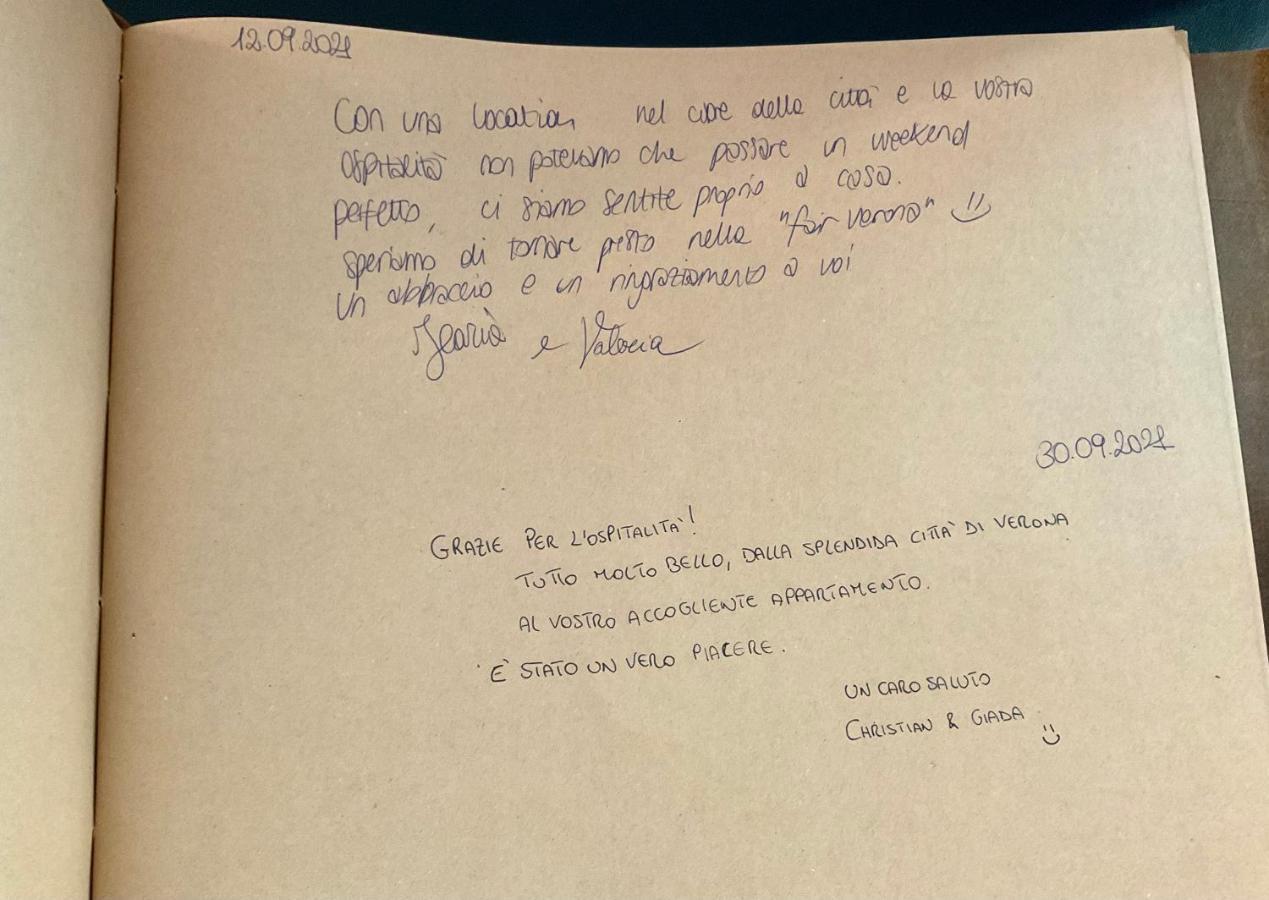 12.09.2021
Con una location nel cuore della città e la vostra
ospitalità non potevamo che passare un weekend
perfetto, ci siamo sentite proprio a casa.
speriamo di tornare presto nella "fair verona" :)
un abbraccio e un ringraziamento a voi
Ilaria e Valeria
30.09.2021
GRAZIE PER L'OSPITALITA'!
TUTTO MOLTO BELLO, DALLA SPLENDIDA CITTA' DI VERONA
AL VOSTRO ACCOGLIENTE APPARTAMENTO.
E' STATO UN VERO PIACERE.
UN CARO SALUTO
CHRISTIAN & GIADA :)